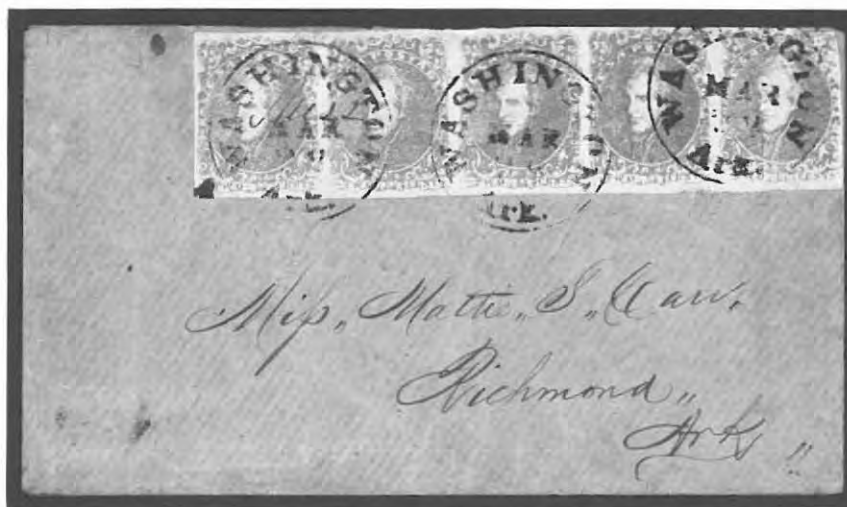 WASHINGTON
MAR
Ark.
WASHINGTON
MAR
Ark.
WASHINGTON
MAR
Ark.
Miss, Mattie, S,
Richmond,,
Ark,,